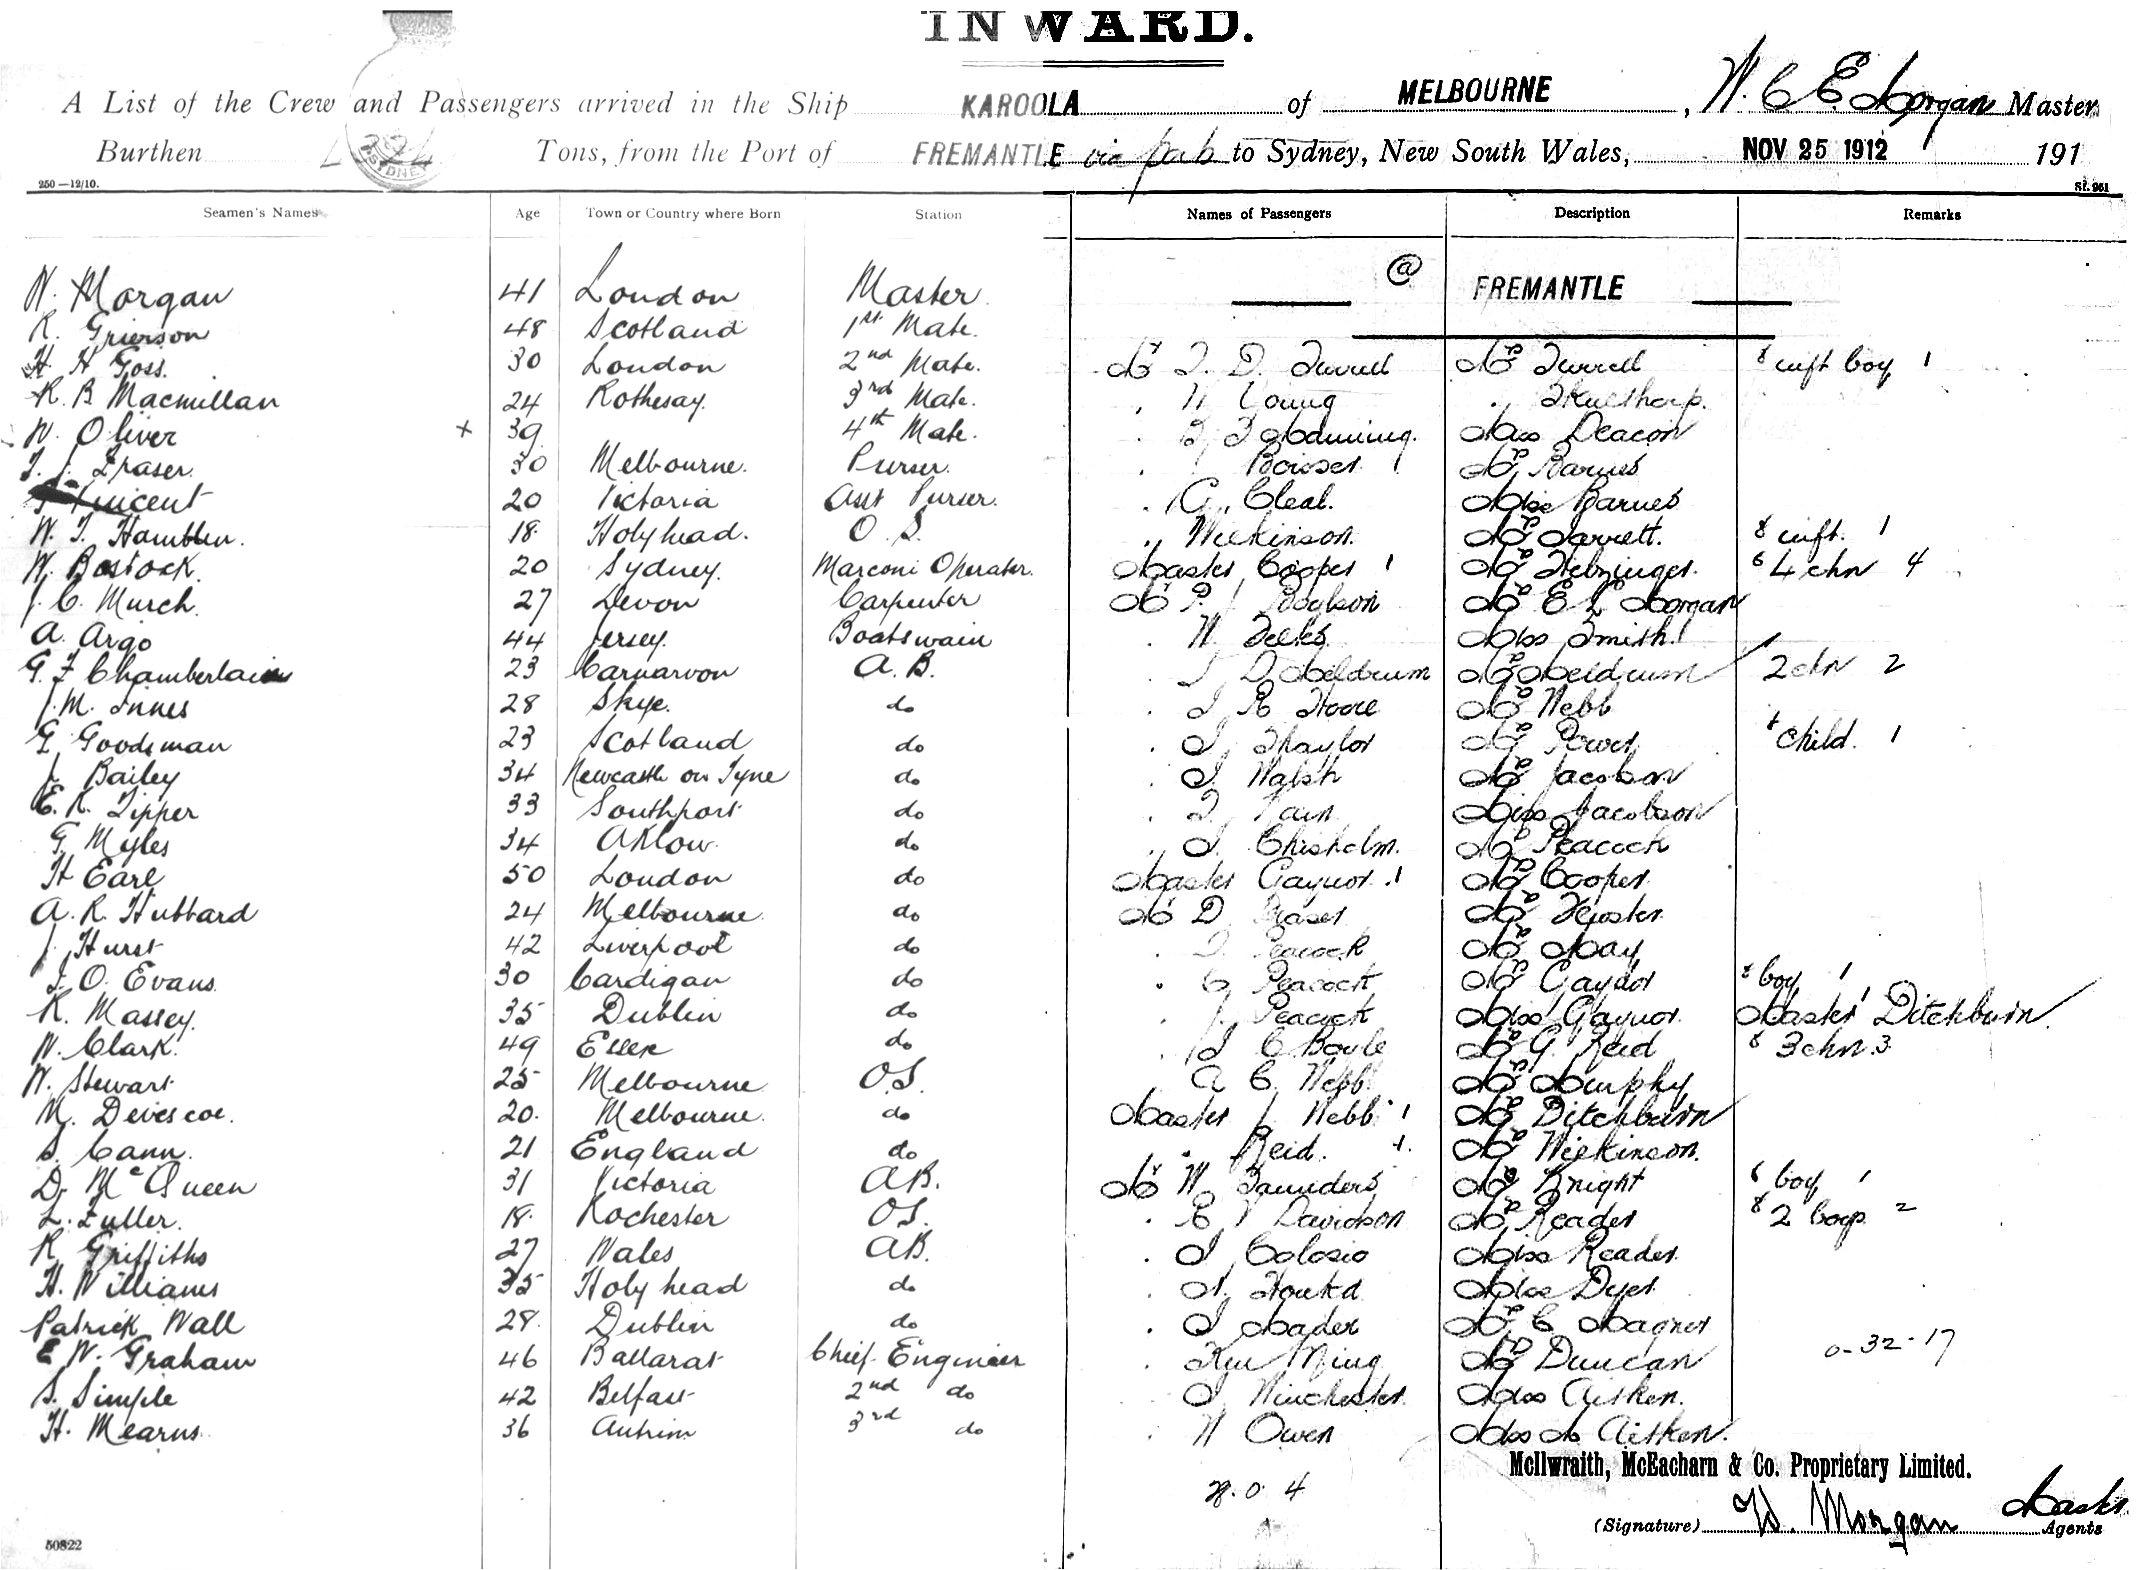 INWARD.
A List of the Crew and Passengers arrived in the Ship KAROOLA of MELBOURNE, W. C. E. Morgan Master
Burthen Tons, from the Port of FREMANTLE via to Sydney, New South Wales, NOV 25 1912 191
250—12/10. St. 961
Seamen's Names Age Town or Country where Born Station Names of Passengers Description Remarks
@ FREMANTLE
W. Morgan 41 London Master
R. Grierson 48 Scotland 1st Mate.
H. H Goss. 30 London 2nd Mate. Mr T. D. Turrell Mrs Turrell & inft boy 1
R. B Macmillan 24 Rothesay. 3rd Mate. " W Young " Skulthorp.
W. Oliver + 39 4th Mate. " B Manning. Miss Deacon
T. J. Fraser. 30 Melbourne. Purser. " Bowser Mrs Barnes
Vincent 20 Victoria Asst Purser. " G. Cleal. Miss Barnes
W. T. Hamblin. 18. Holyhead. O. S. " Wilkinson. Mrs Garrett. & inft. 1
W. Bostock. 20 Sydney. Marconi Operator. Master Cooper 1 Mrs Helzinger. & 4 chn 4
J. C. Murch. 27 Devon Carpenter Mr P. J. Hodgson Mrs E L Morgan
A. Argo 44 Jersey. Boatswain " W Miss Smith.
G. F Chamberlain 23 Carnarvon A. B. " J D Meldrum Mrs Meldrum 2 chn 2
J. M. Innes 28 Skye. do " J R Hoore Mrs Webb
G Goodsman 23 Scotland do " J. Thaylor Mrs Power & child. 1
J. Bailey 34 Newcastle on Tyne do " J. Walsh Mrs Jacobson
E. R. Tipper 33 Southport do " T. Miss Jacobson
G Myles 34 Arklow. do " J. Chisholm. Mrs Peacock
H Earl 50 London do Master Gaynor. 1 Mrs Cooper
A. R. Hubbard 24 Melbourne do Mr D Fraser Mrs
J. Hurst 42 Liverpool do " Peacock Mrs May
J. O. Evans 30 Cardigan do " C Peacock Mrs Gaynor & boy 1
R. Massey. 35 Dublin do " J. Peacock Miss Gaynor. Master Ditchburn
W. Clark. 49 Essex do " J C Boyle Mrs G. Reid & 3 chn. 3
W. Stewart 25 Melbourne O.S. " A C. Webb Mrs Murphy
M. Devescoe. 20. Melbourne. do Master J. Webb 1 Mrs Ditchburn
S. Cann. 21 England do " Reid. 1 Mrs Wilkinson.
D. McQueen 31 Victoria A.B. Mr W Saunders Mrs Knight & boy 1
L. Fuller. 18. Rochester O.S. " E V Davidson Mrs Reader & 2 boys 2
R Griffiths 27 Wales A.B. " J Colosio Miss Reader.
H. Williams 35 Holyhead do " Miss Dyer.
Patrick Wall 28. Dublin do " J Mader Mrs C Magner
E W. Graham 46 Ballarat Chief Engineer " Kin Ming Mrs Duncan 0-32-17
S. Simple 42 Belfast 2nd do " J Winchester Miss Aitken.
H. Mearns 36 Antrim 3rd do " W Owen Miss M Aitken.
McIlwraith, McEacharn & Co. Proprietary Limited.
(Signature) W. Morgan Master
Agents
50822